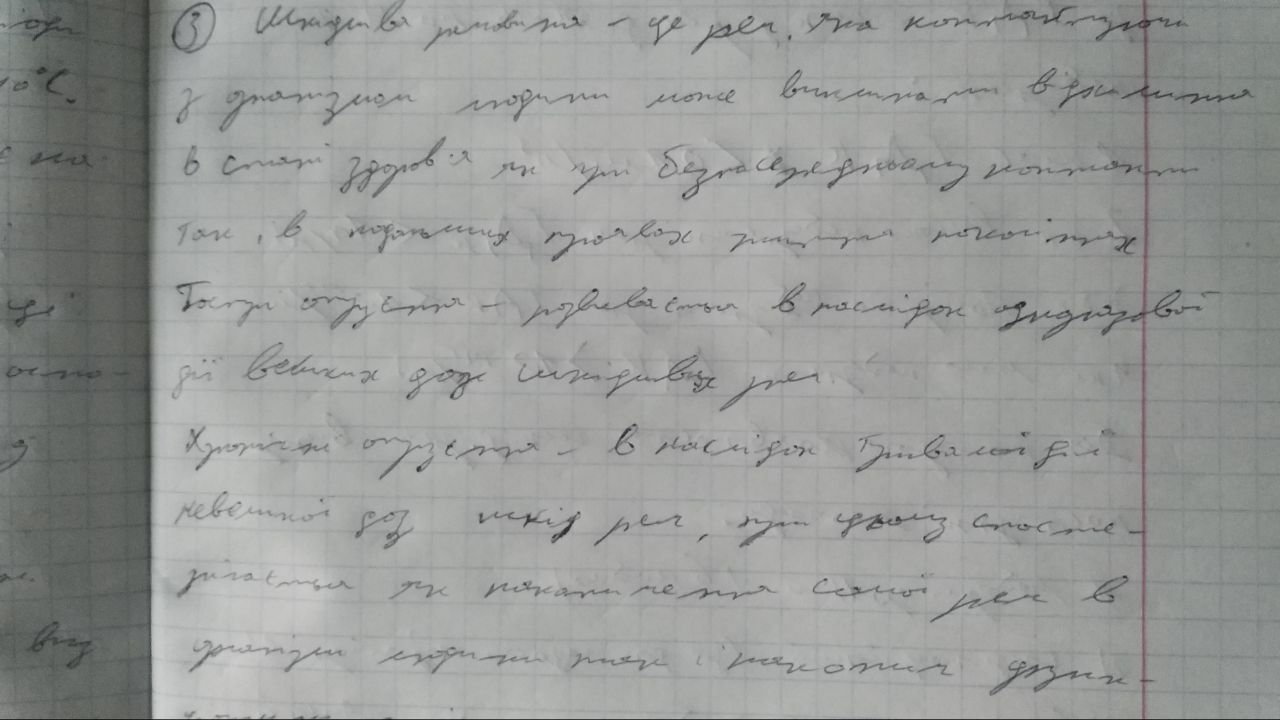 ③ Шкідлива речовина – це реч, яка контактуючи
з організмом людини може викликати відхилення
в стані здоров'я як при безпосередньому контакті
так і в подальших проявах
Гострі отруєння – розвивається в наслідок одноразової
дії великих доз шкідливих реч.
Хронічні отруєння – в наслідок тривалої дії
невеликої доз шкід реч, при цьому спосте-
рігається як накопичення самої реч в
організмі людини так і функ-